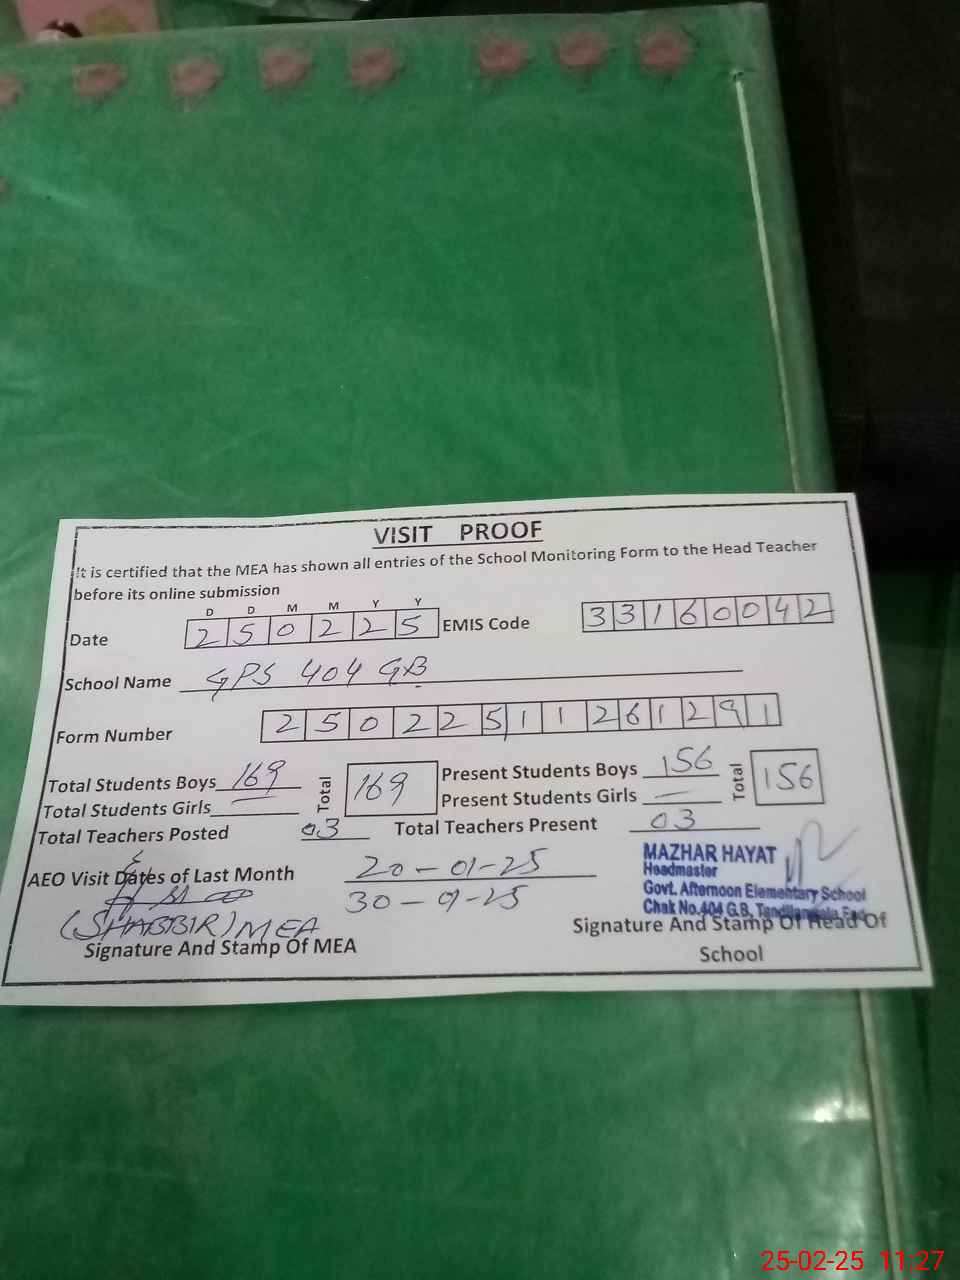 VISIT PROOF
It is certified that the MEA has shown all entries of the School Monitoring Form to the Head Teacher
before its online submission
D D M M Y Y
Date 2 5 0 2 2 5 EMIS Code 3 3 1 6 0 0 4 2
School Name GPS 404 GB
Form Number 2 5 0 2 2 5 1 1 2 6 1 2 9 1
Total Students Boys 169 Total 169 Present Students Boys 156 Total 156
Total Students Girls — Present Students Girls —
Total Teachers Posted 03 Total Teachers Present 03
AEO Visit Dates of Last Month 20-01-25
30-01-25
MAZHAR HAYAT
Headmaster
Govt. Afternoon Elementary School
Chak No.404 G.B, Tandlianwala Fsd
(SHABBIR) MEA
Signature And Stamp Of MEA
Signature And Stamp Of Head Of
School
25-02-25 11:27